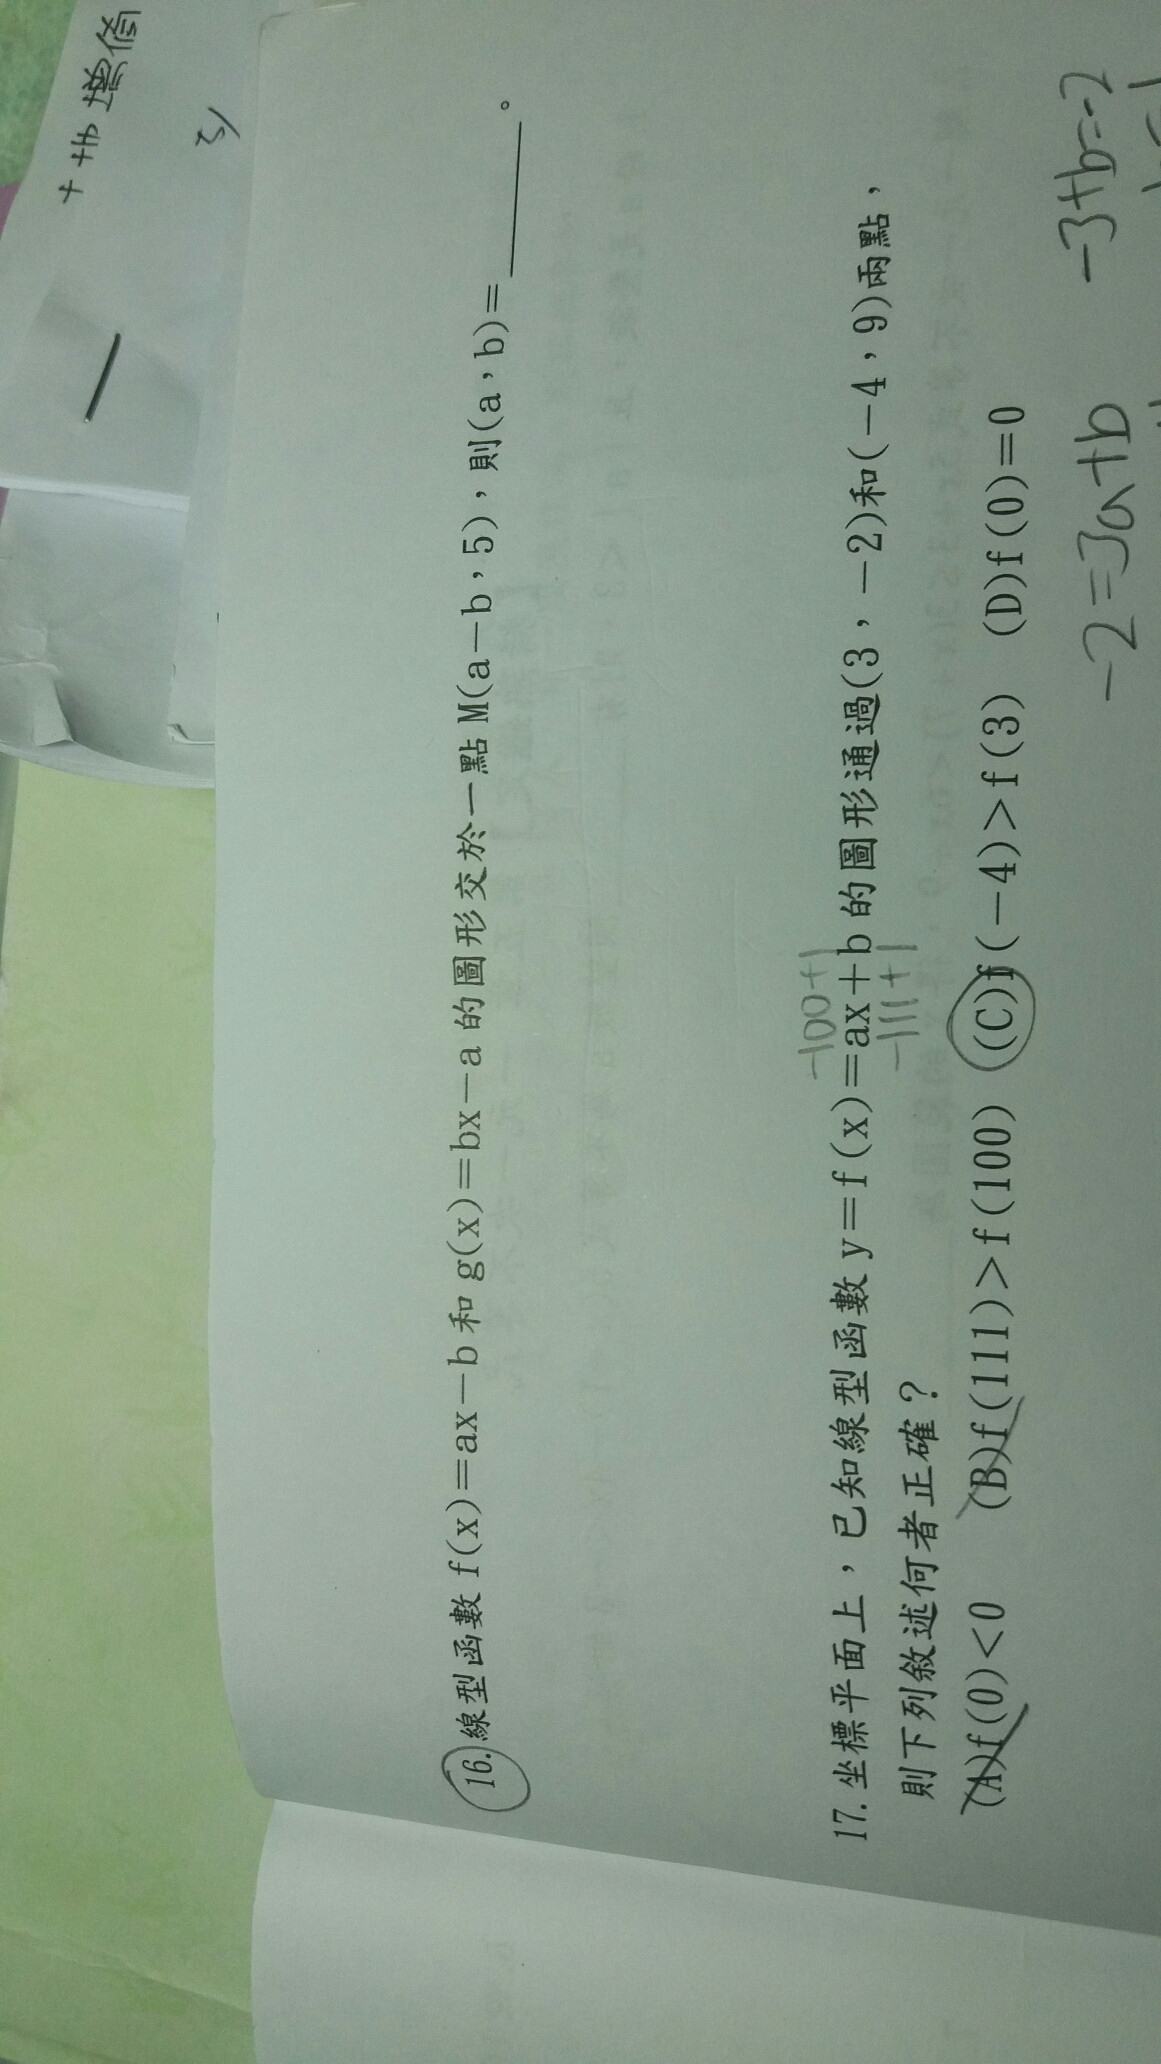 16.線型函數 f(x)=ax-b 和 g(x)=bx-a 的圖形交於一點 M(a-b,5),則(a,b)=______。
-100+1
17.坐標平面上,已知線型函數 y=f(x)=ax+b 的圖形通過(3,-2)和(-4,9)兩點,
-111+1
則下列敘述何者正確?
(A)f(0)<0 (B)f(111)>f(100) (C)f(-4)>f(3) (D)f(0)=0
-2=3a+b -3+b=-2